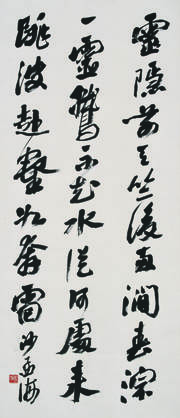 靈隱前天竺後兩澗春淙
一靈鷲不知水從何處來
跳波赴壑如奔雷 沙孟海